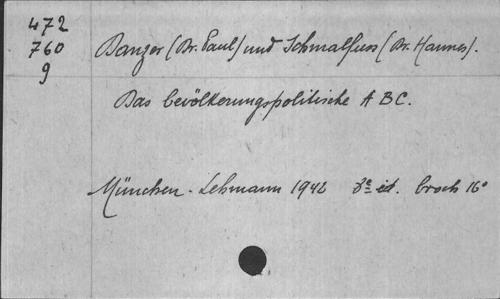 472
760
9
Danzer (Dr. Paul) und Schmalfuss (Dr. Hannes).
Das bevölkerungspolitische A B C.
München - Lehmann 1942 éd. broch 16°